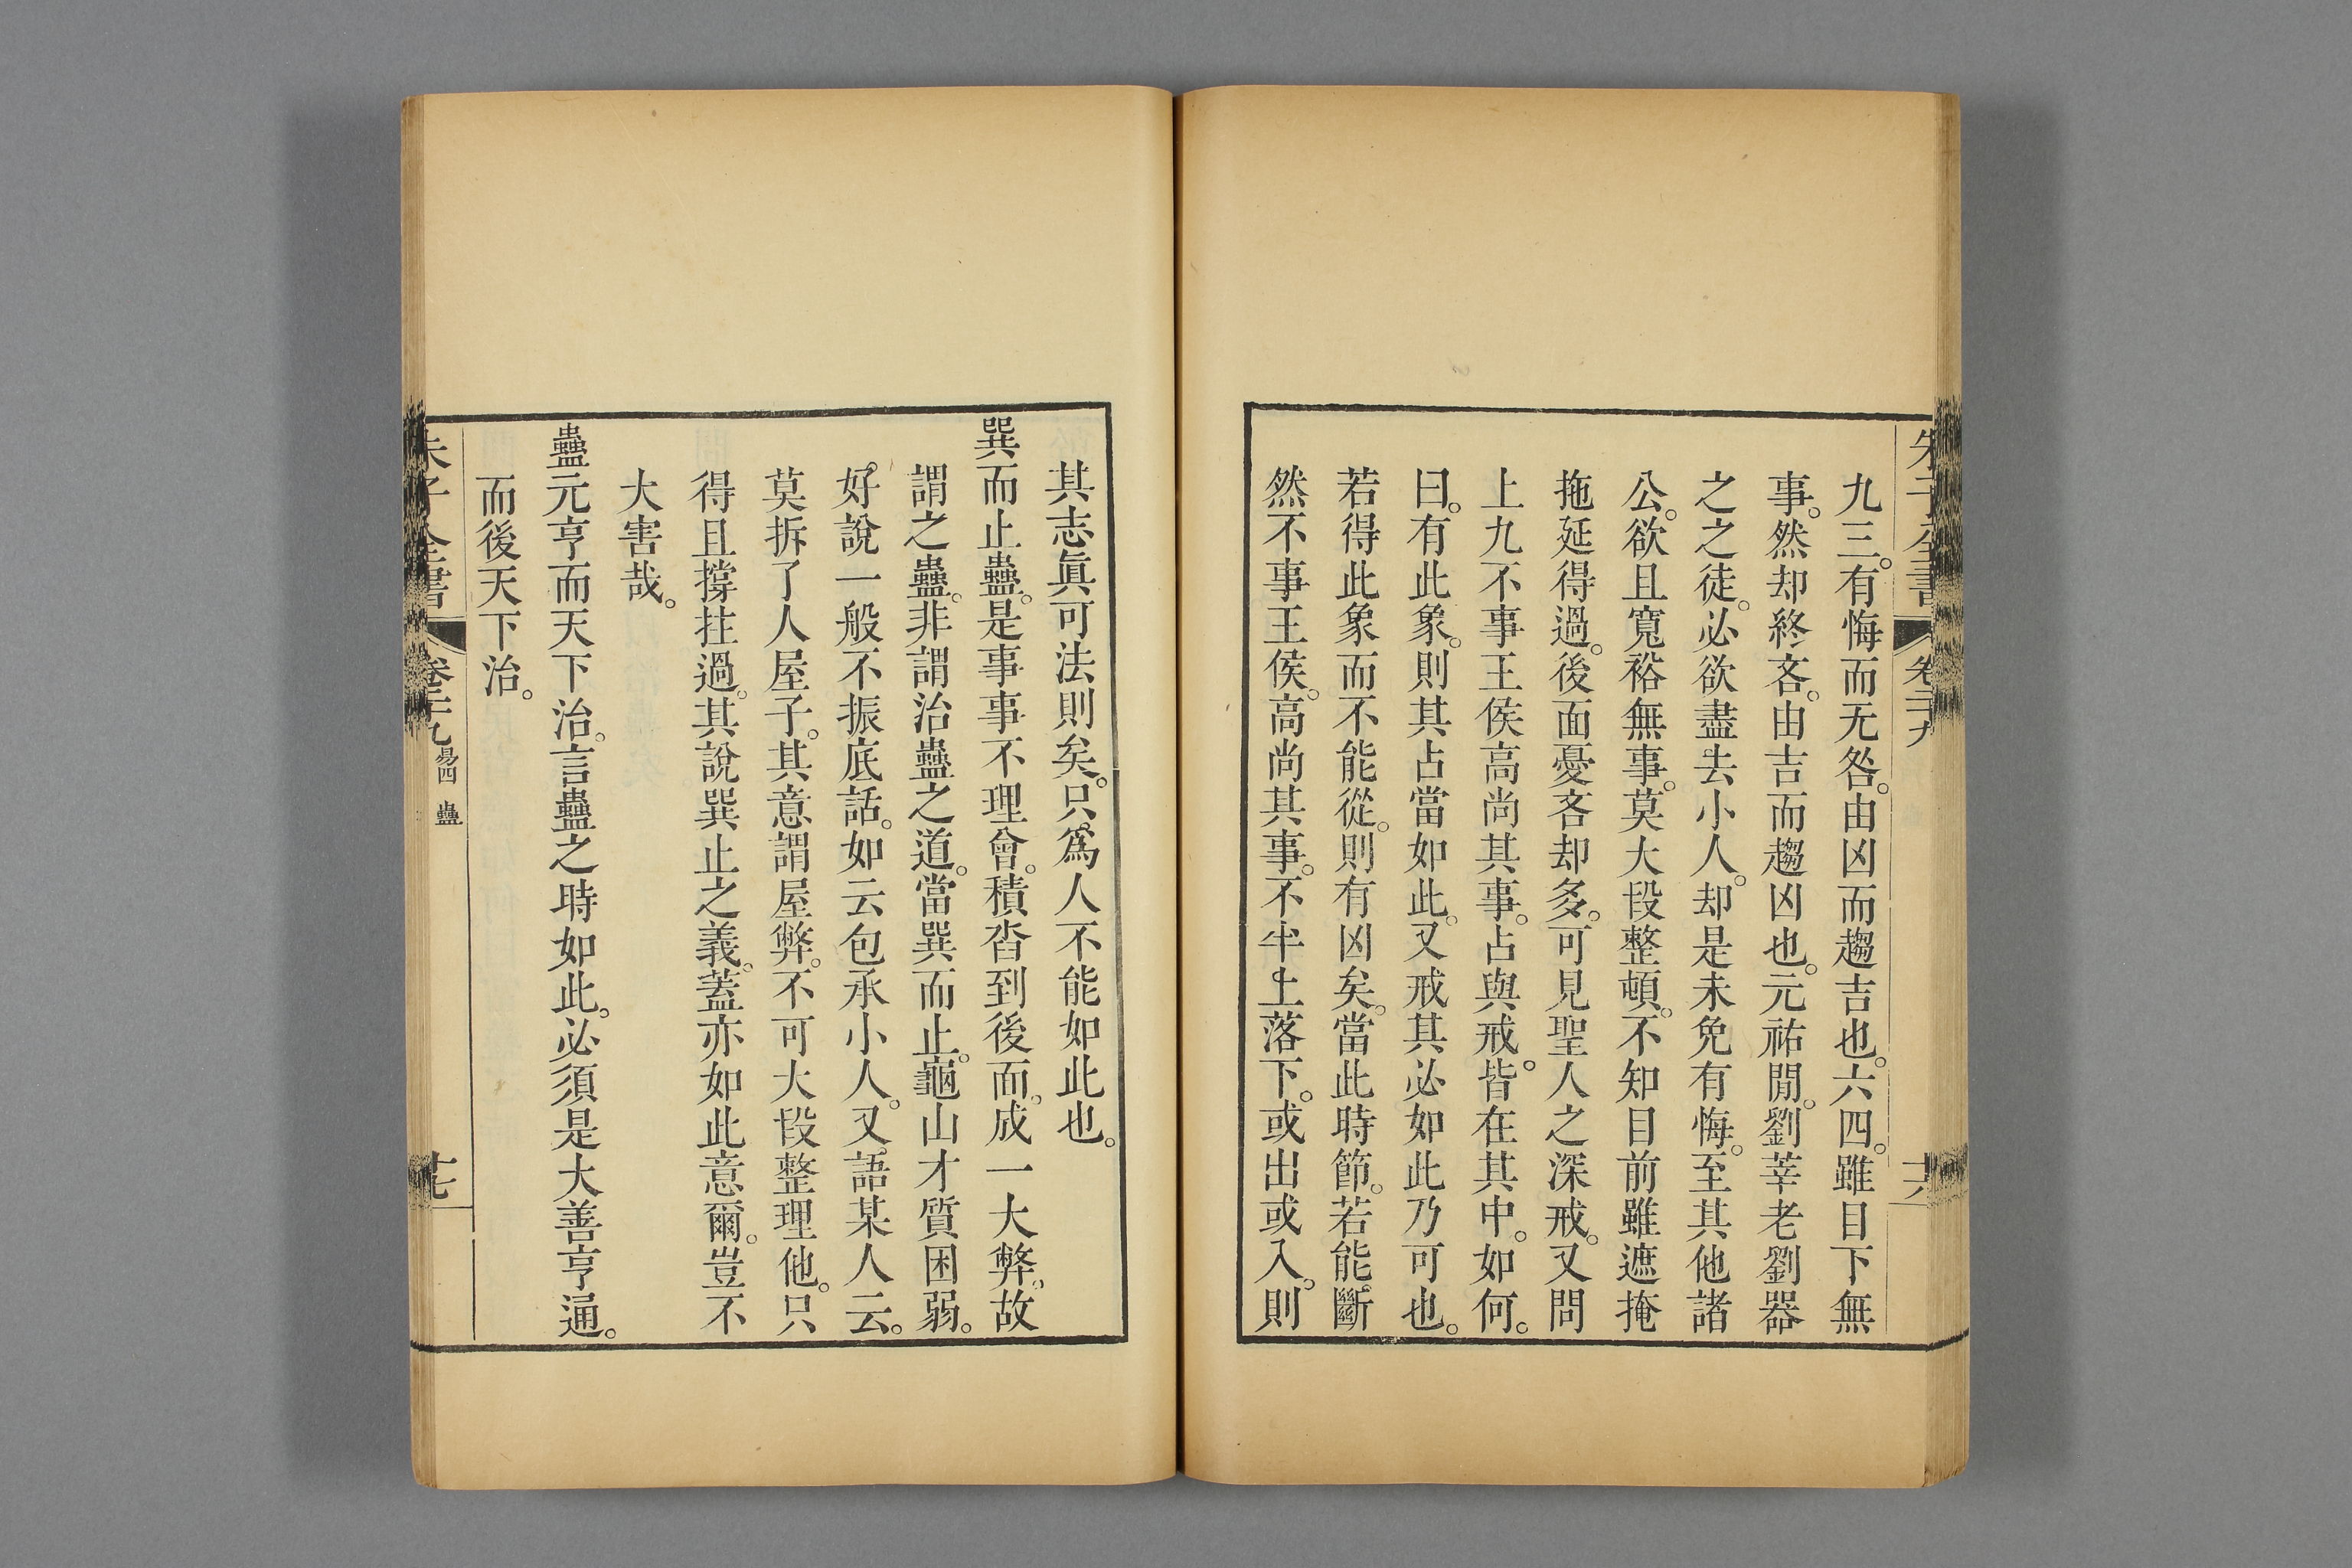 朱子全書 卷二十九 十六
九三。有悔而无咎。由凶而趨吉也。六四。雖目下無
事。然却終吝。由吉而趨凶也。元祐閒。劉莘老劉器
之之徒。必欲盡去小人。却是未免有悔。至其他諸
公。欲且寬裕無事。莫大段整頓。不知目前雖遮掩
拖延得過。後面憂吝却多。可見聖人之深戒。又問
上九不事王侯高尚其事。占與戒。皆在其中。如何。
曰。有此象。則其占當如此。又戒其必如此乃可也。
若得此象而不能從。則有凶矣。當此時節。若能斷
然不事王侯。高尚其事。不半上落下。或出或入。則
其志眞可法則矣。只爲人不能如此也。
巽而止蠱。是事事不理會。積沓到後而。成一大弊。故
謂之蠱。非謂治蠱之道。當巽而止。龜山才質困弱。
好說一般不振底話。如云包承小人。又語某人云。
莫拆了人屋子。其意謂屋弊。不可大段整理他。只
得且撐拄過。其說巽止之義。蓋亦如此意爾。豈不
大害哉。
蠱元亨而天下治。言蠱之時如此。必須是大善亨通。
而後天下治。
朱子全書 卷二十九 易四 蠱 十七